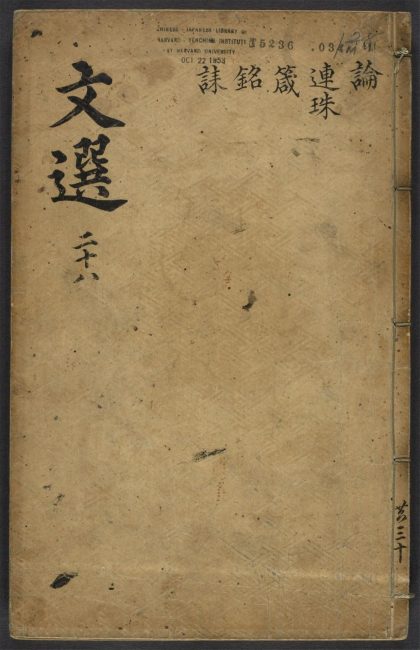 CHINESE - JAPANESE LIBRARY OF
HARVARD - YENCHING INSTITUTE
AT HARVARD UNIVERSITY
OCT 22 1953
5236 .03
論
連珠
箴
銘
誄
文選
二十八
共三十